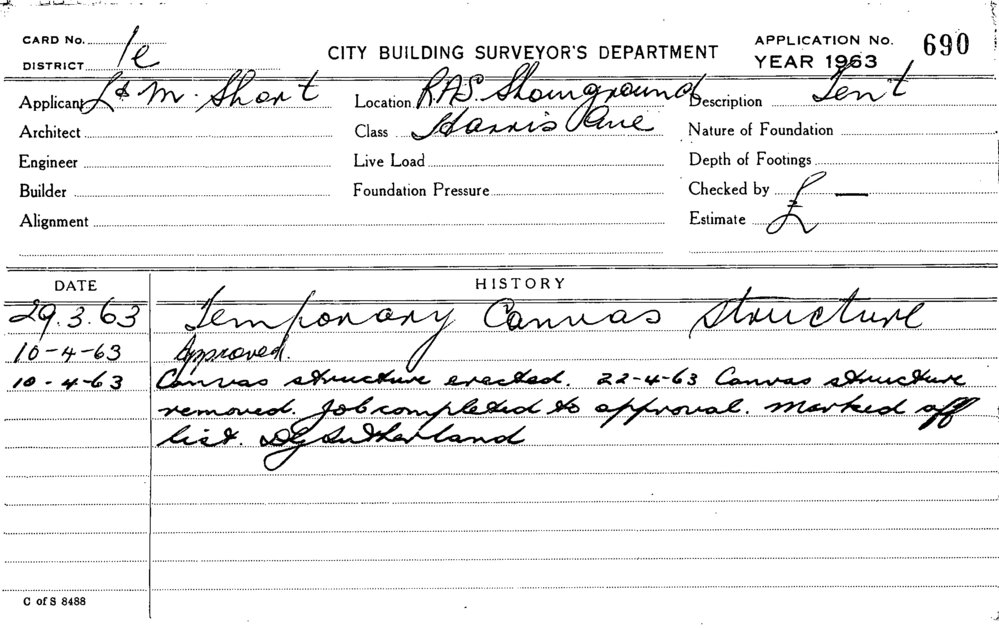 CARD No.
DISTRICT 1e
CITY BUILDING SURVEYOR'S DEPARTMENT
APPLICATION No. 690
YEAR 1963
Applicant L & M. Short
Location RAS. Showground
Description Tent
Architect
Class Harris Ave
Nature of Foundation
Engineer
Live Load
Depth of Footings
Builder
Foundation Pressure
Checked by —
Alignment
Estimate £
DATE HISTORY
29.3.63 Temporary Canvas Structure
10-4-63 Approved.
10-4-63 Canvas structure erected. 22-4-63 Canvas structure
removed. Job completed to approval. Marked off
list. DG Sutherland
C of S 8488